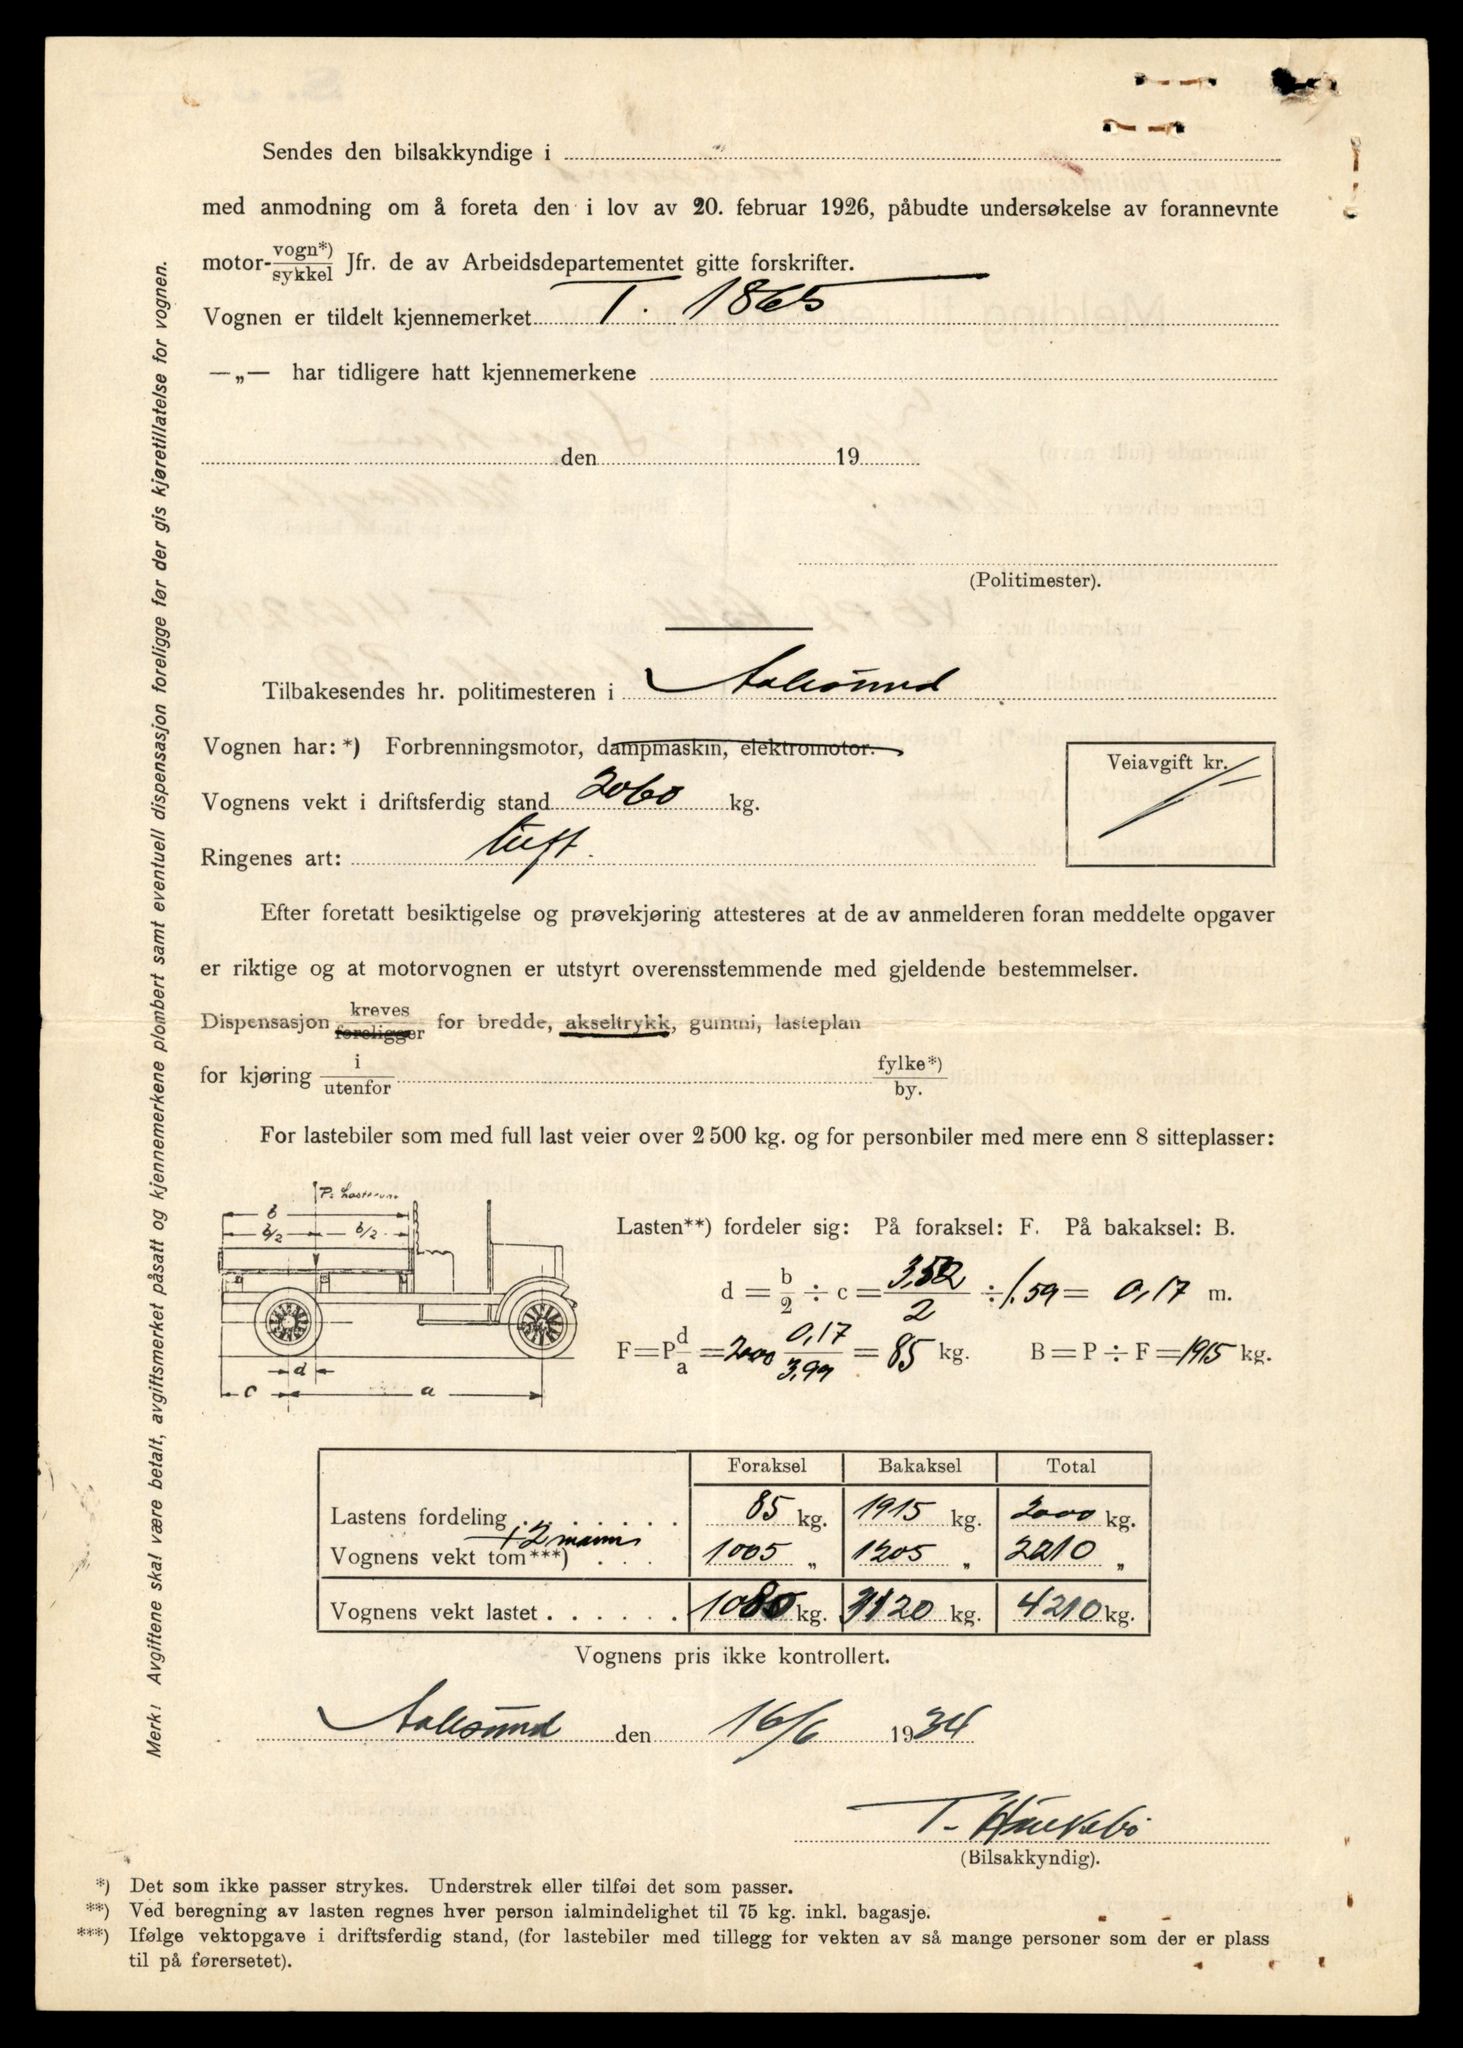 Sendes den bilsakkyndige i
med anmodning om å foreta den i lov av 20. februar 1926, påbudte undersøkelse av forannevnte
motor-vogn*)/sykkel Jfr. de av Arbeidsdepartementet gitte forskrifter.
Vognen er tildelt kjennemerket T. 1865
—„— har tidligere hatt kjennemerkene
den 19
(Politimester).
Tilbakesendes hr. politimesteren i Aalesund
Vognen har: *) Forbrenningsmotor, dampmaskin, elektromotor.
Veiavgift kr.
Vognens vekt i driftsferdig stand 2060 kg.
Ringenes art: luft.
Efter foretatt besiktigelse og prøvekjøring attesteres at de av anmelderen foran meddelte opgaver
er riktige og at motorvognen er utstyrt overensstemmende med gjeldende bestemmelser.
Dispensasjon kreves/foreligger for bredde, akseltrykk, gummi, lasteplan
for kjøring i/utenfor fylke*)/by.
For lastebiler som med full last veier over 2 500 kg. og for personbiler med mere enn 8 sitteplasser:
P. Lastevekt
b
b/2 b/2
d
c a
Lasten**) fordeler sig: På foraksel: F. På bakaksel: B.
d = b/2 ÷ c = 3,52/2 ÷ 1.59 = 0,17 m.
F = P d/a = 2000 0,17/3,99 = 85 kg. B = P ÷ F = 1915 kg.
Foraksel Bakaksel Total
Lastens fordeling . . . . . . . 85 kg. 1915 kg. 2000 kg.
+ 2 mann
Vognens vekt tom***) . . . 1005 „ 1205 „ 2210 „
Vognens vekt lastet . . . . . . 1080 kg. 3120 kg. 4210 kg.
Vognens pris ikke kontrollert.
Aalesund den 16/6 1934
T. Hauksbö
(Bilsakkyndig).
*) Det som ikke passer strykes. Understrek eller tilføi det som passer.
**) Ved beregning av lasten regnes hver person ialmindelighet til 75 kg. inkl. bagasje.
***) Ifølge vektopgave i driftsferdig stand, (for lastebiler med tillegg for vekten av så mange personer som der er plass
til på førersetet).
Merk! Avgiftene skal være betalt, avgiftsmerket påsatt og kjennemerkene plombert samt eventuell dispensasjon foreligge før der gis kjøretillatelse for vognen.